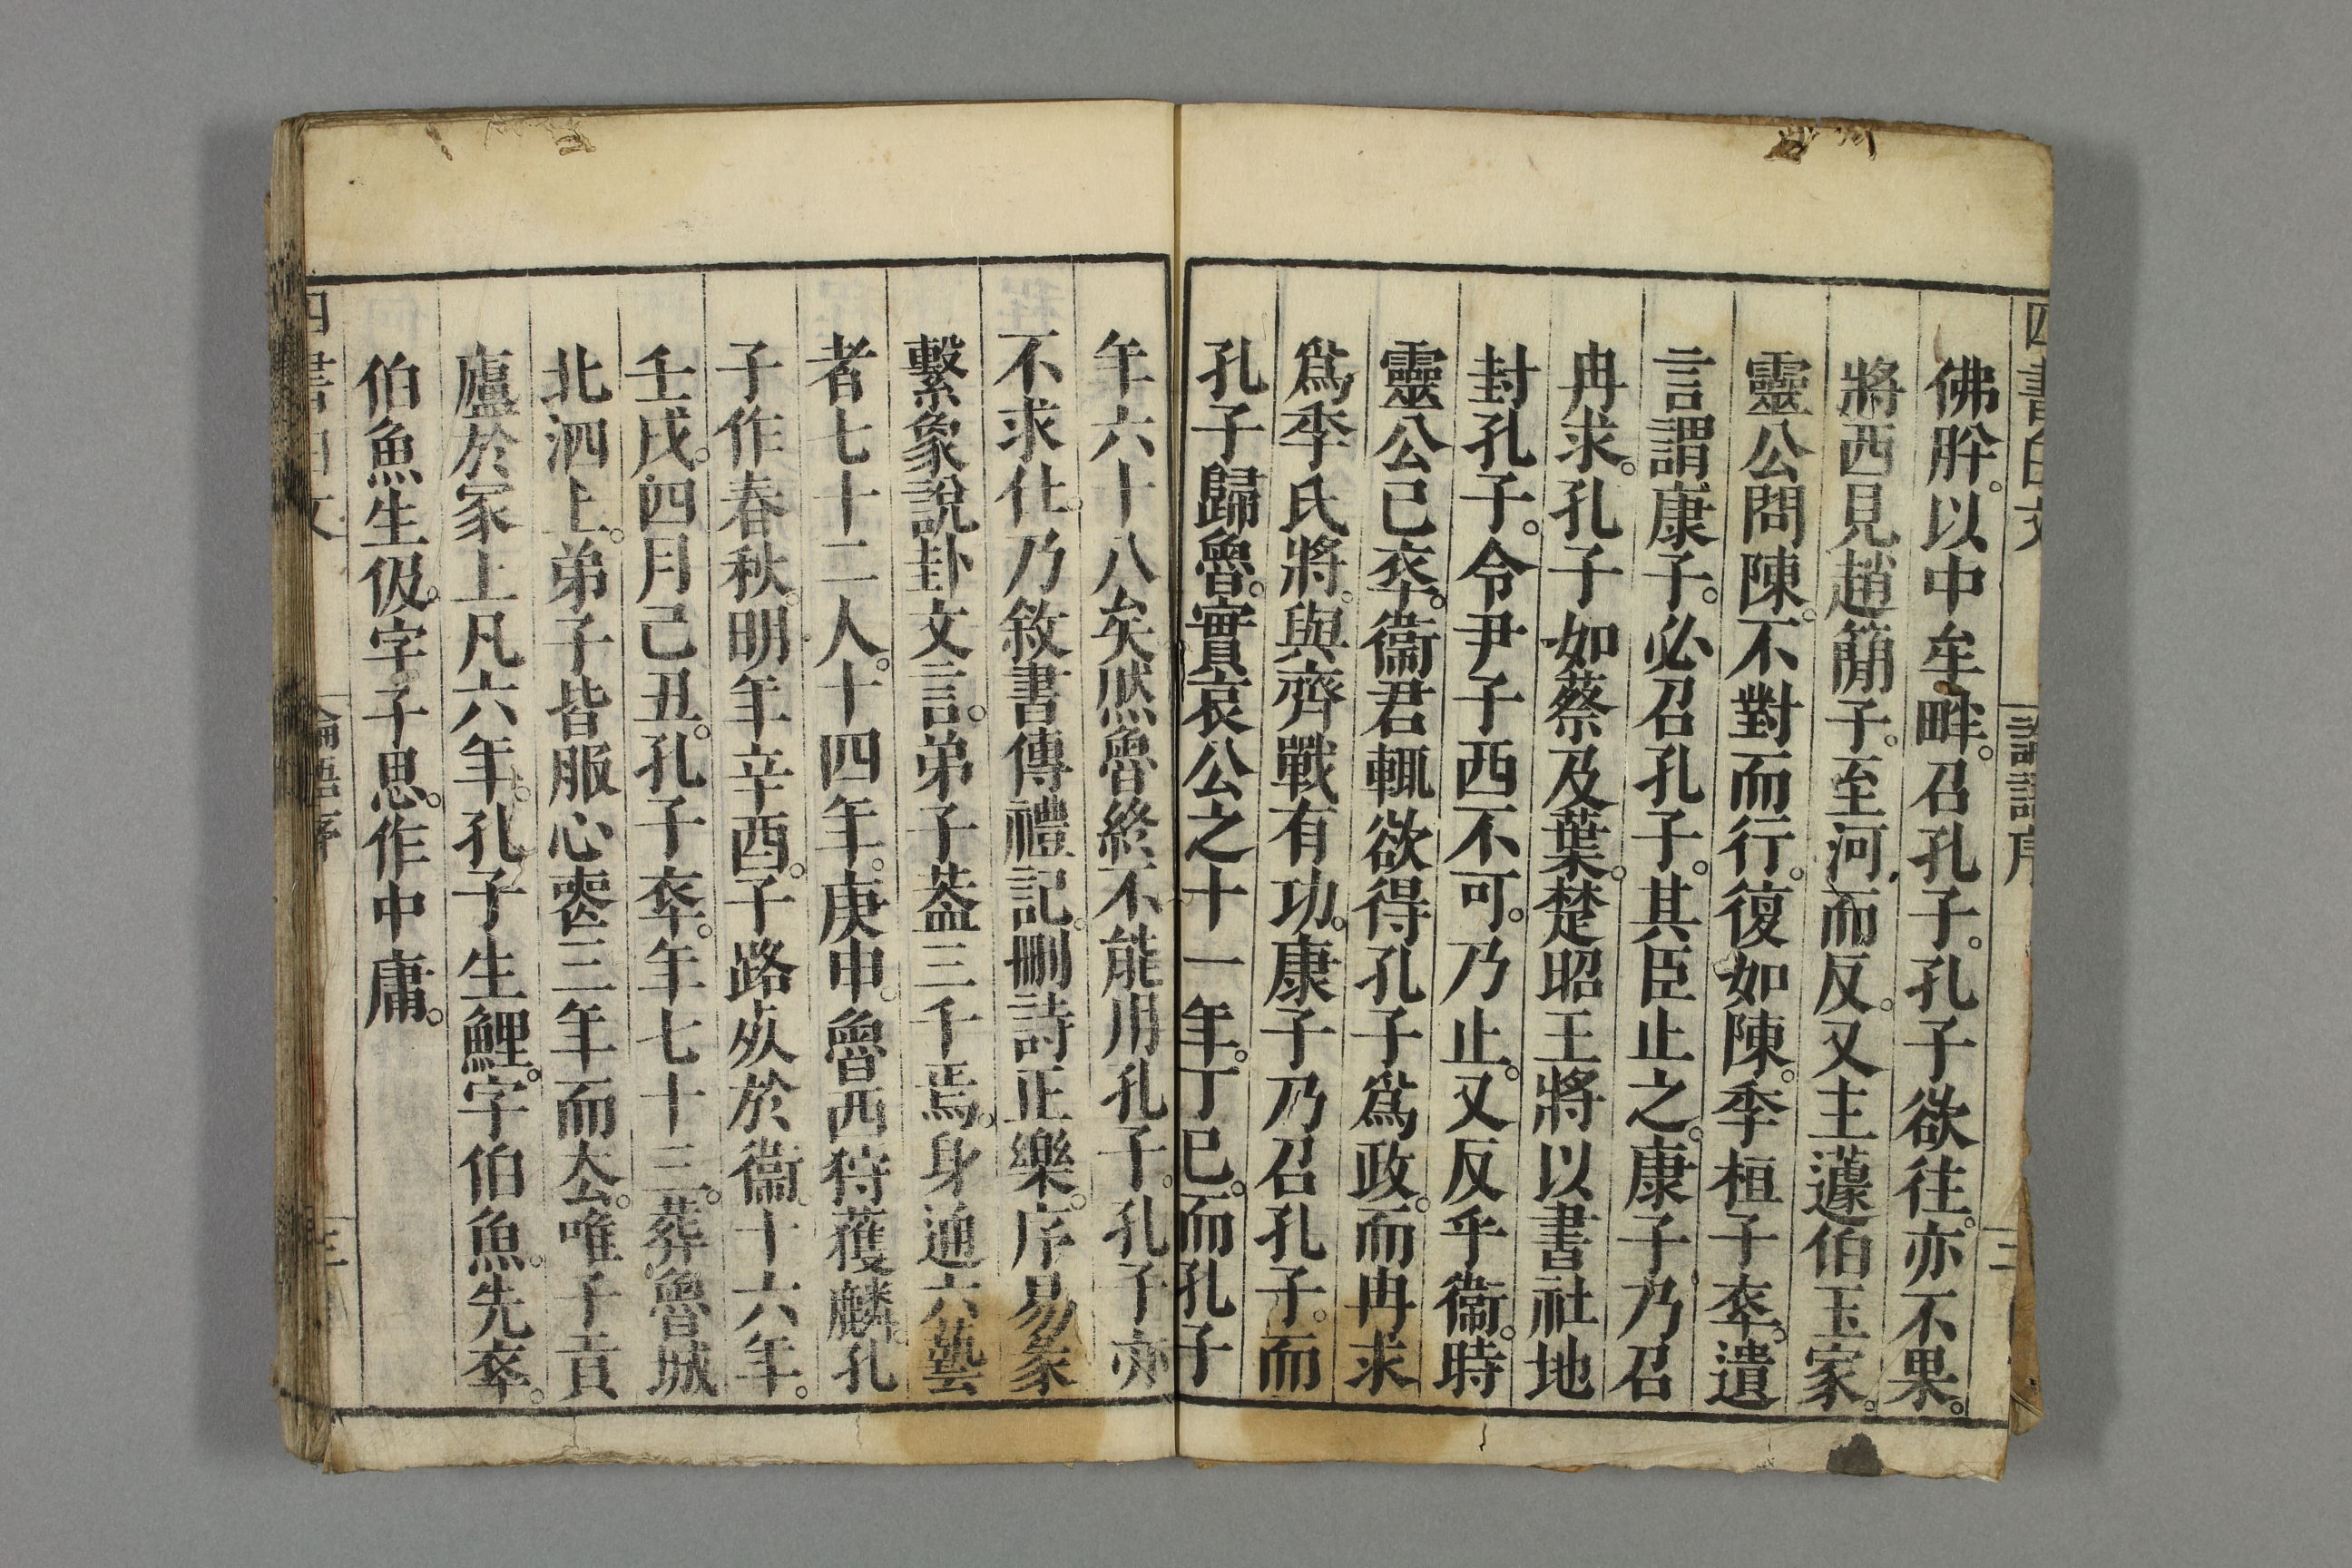 四書白文 論語序 三
佛肸。以中牟畔。召孔子。孔子欲往。亦不果。
將西見趙簡子。至河而反。又主蘧伯玉家。
靈公問陳。不對而行。復如陳。季桓子卒。遺
言謂康子。必召孔子。其臣止之。康子乃召
冉求。孔子如蔡及葉。楚昭王將以書社地
封孔子。令尹子西不可。乃止。又反乎衞。時
靈公已卒。衞君輒欲得孔子爲政。而冉求
爲季氏將。與齊戰有功。康子乃召孔子。而
孔子歸魯。實哀公之十一年。丁巳。而孔子
年六十八矣然魯終不能用孔子。孔子亦
不求仕。乃敘書傳禮記。刪詩正樂。序易彖
繫象說卦文言。弟子蓋三千焉。身通六藝
者七十二人。十四年。庚申。魯西狩獲麟。孔
子作春秋。明年辛酉。子路死於衞。十六年。
壬戌。四月己丑。孔子卒。年七十三。葬魯城
北泗上。弟子皆服心喪三年而去。唯子貢
廬於冢上凡六年。孔子生鯉。字伯魚。先卒。
伯魚生伋。字子思。作中庸。
四書白文 論語序 三